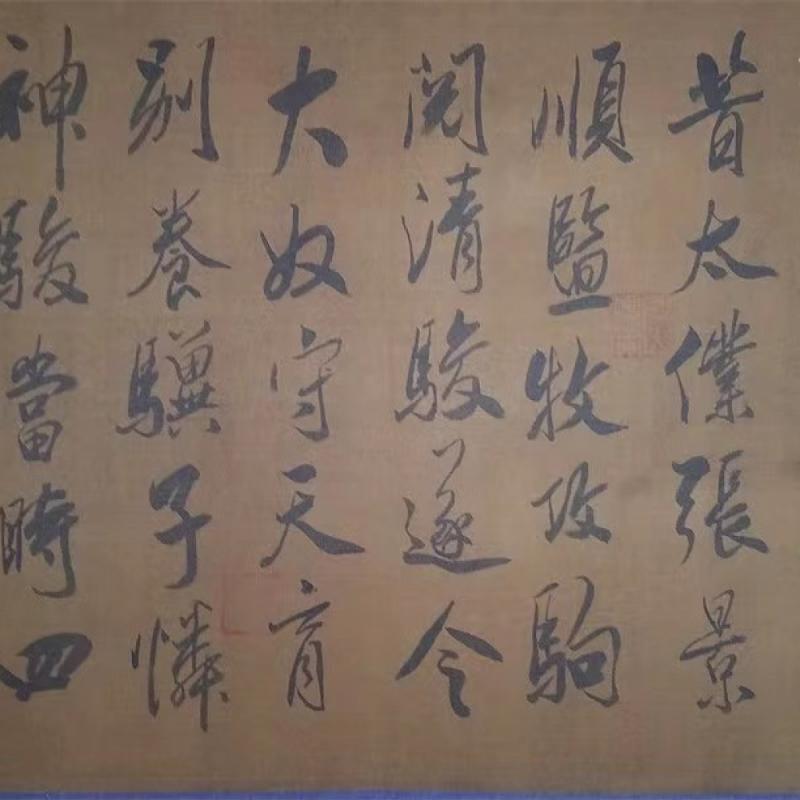 昔太僕張景
順監牧攻駒
閱清駿遂令
大奴守天育
別養驥子憐
神駿當時四